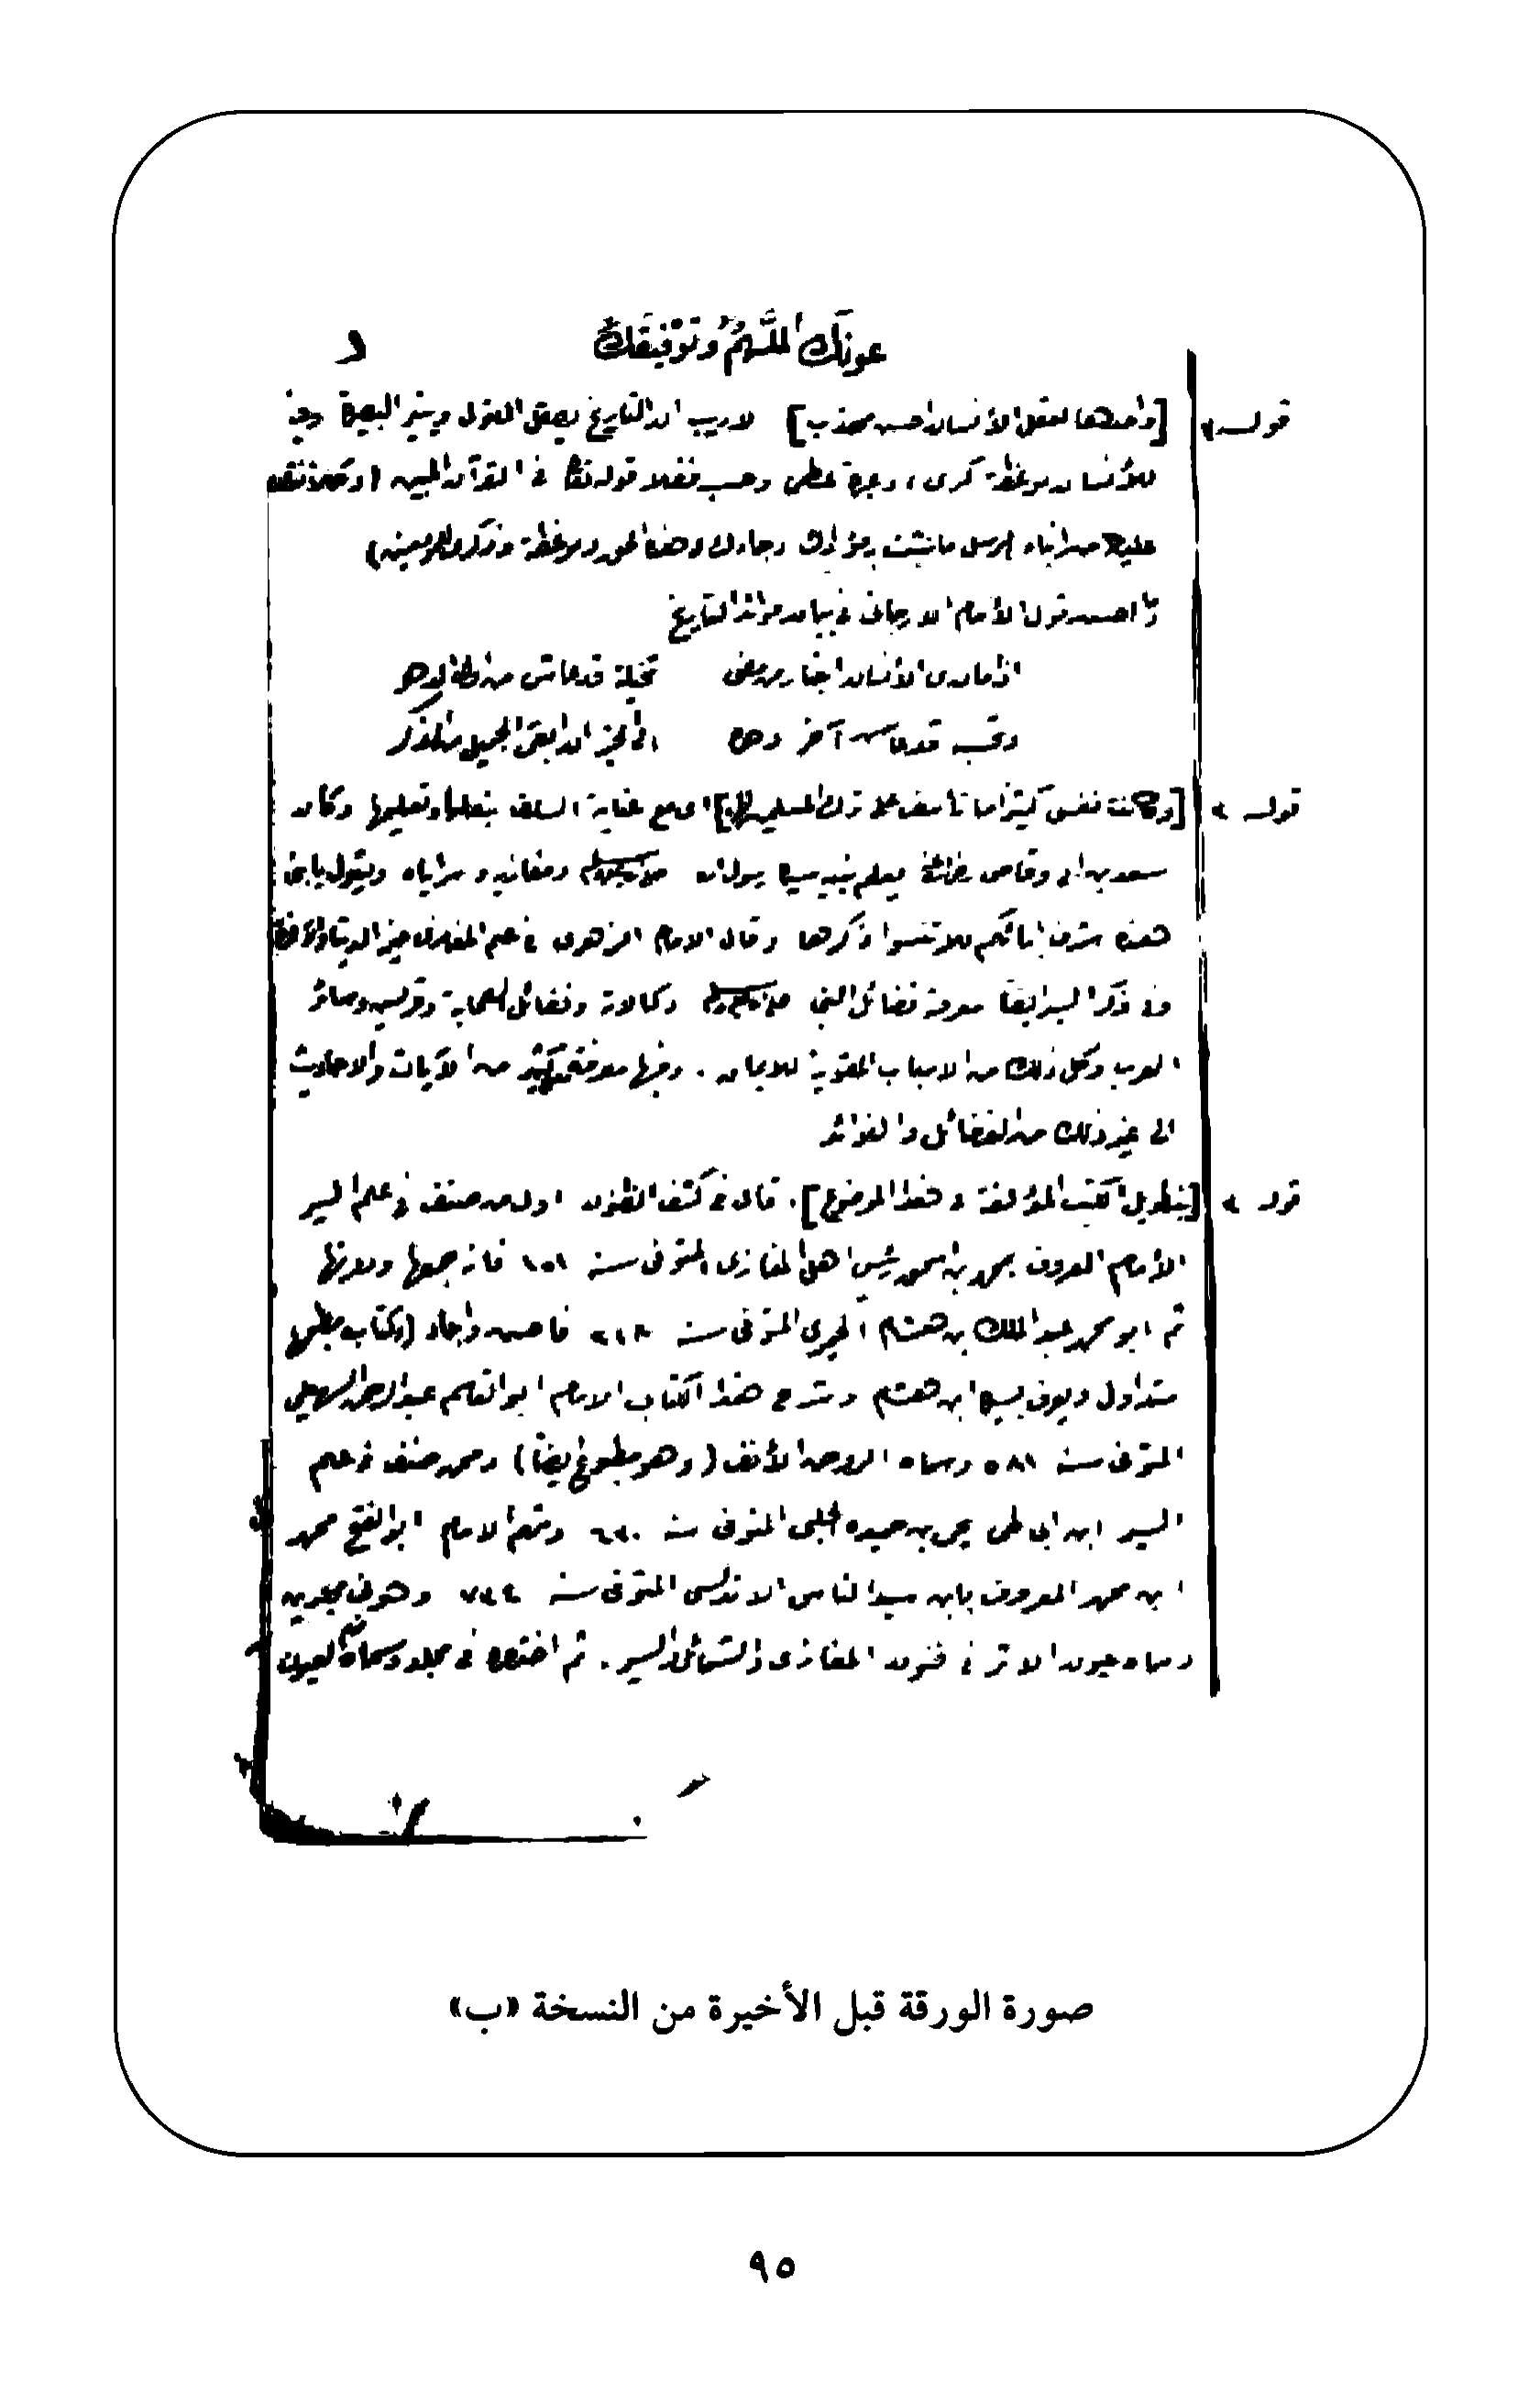 عونك اللهم وتوفيقك
قوله [وأحدها لعقل الأنسان أحسن مهذب] لا ريب ان التاريخ يصقل العقول وينير البصيرة وفيه
للأنسان موعظة كبرى، وعبرة عظمى وحسب فضله قوله تعالى في القرآن المبين (وكلا نقص
عليك من أنباء الرسل ما نثبت به فؤادك وجاءك في هذه الحق وموعظة وذكرى للمؤمنين)
وما احسن قول الأمام الارجاني في بيان فوائد التاريخ
اذا ما درى الأنسان اخبار من مضى تخيلة قد عاش من اول الدهر
وتحسبه قد عاش آخر دهره الى الحشر ان ابقى الجميل من الذكر
قوله [وكانت نفسي كثيرا ما تأسف على ترك المسلمين لها] اي مع عناية السلف بتعلمها وتعليمها وكان
سعد بن ابي وقاص رضي الله عنه يعلم بنيه سيرة رسول الله صلى الله عليه وسلم ومغازيه وسراياه ويقول يا بني
هذه شرف آبائكم فلا تنسوا ذكرها وقال الامام الزهري في علم المغازي خير الدنيا والآخرة
وفي ذكر السير ايضا معرفة فضائل النبي صلى الله عليه وسلم وكمالاته وفضائل الصحابة وقريش وسائر
العرب وكل ذلك من الاسباب المقوية للايمان. وفيها معرفة كثير من الآيات والاحاديث
الى غير ذلك من الفضائل والفوائد
قوله [بتطويل الكتب المؤلفة في هذا الموضوع]. قال في كشف الظنون اول من صنف في علم السير
الأمام المعروف بمحمد بن اسحق رئيس اهل المغازي المتوفى سنة ١٥١ فانه جمعها ودونها
ثم ابو محمد عبد الملك بن هشام الحميري المتوفى سنة ٢١٨ فاحسن واجاد (وكتابه مطبوع
متداول ويعرف بسيرة ابن هشام وشرح هذا الكتاب الامام ابو القاسم عبد الرحمن السهيلي
المتوفى سنة ٥٨١ وسماه الروض الأنف (وهو مطبوع ايضا) وممن صنف في علم
السير ابن ابي طي يحيى بن حميده الحلبي المتوفى سنة ٦٣٠ ومنهم الامام ابو الفتح محمد
ابن محمد المعروف بابن سيد الناس الاندلسي المتوفى سنة ٧٣٤ وهو في مجلدين
وسماه عيون الاثر في فنون المغازي والشمائل والسير. ثم اختصره في مجلد وسماه نور العيون
صورة الورقة قبل الأخيرة من النسخة «ب»
٩٥